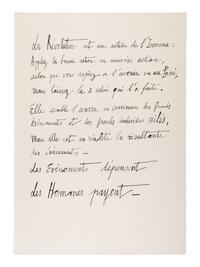 La Révolution est une action de l'Inconnu.
Appelez la bonne action ou mauvaise action,
selon que vous aspirez à l'avenir ou au passé,
mais laissez la à celui qui l'a faite.
Elle semble l'œuvre en commun des grands
événements et des grands individus mêlés,
Mais elle est en réalité la résultante
des événements_
Les Evénements dépensent
Les Hommes payent_